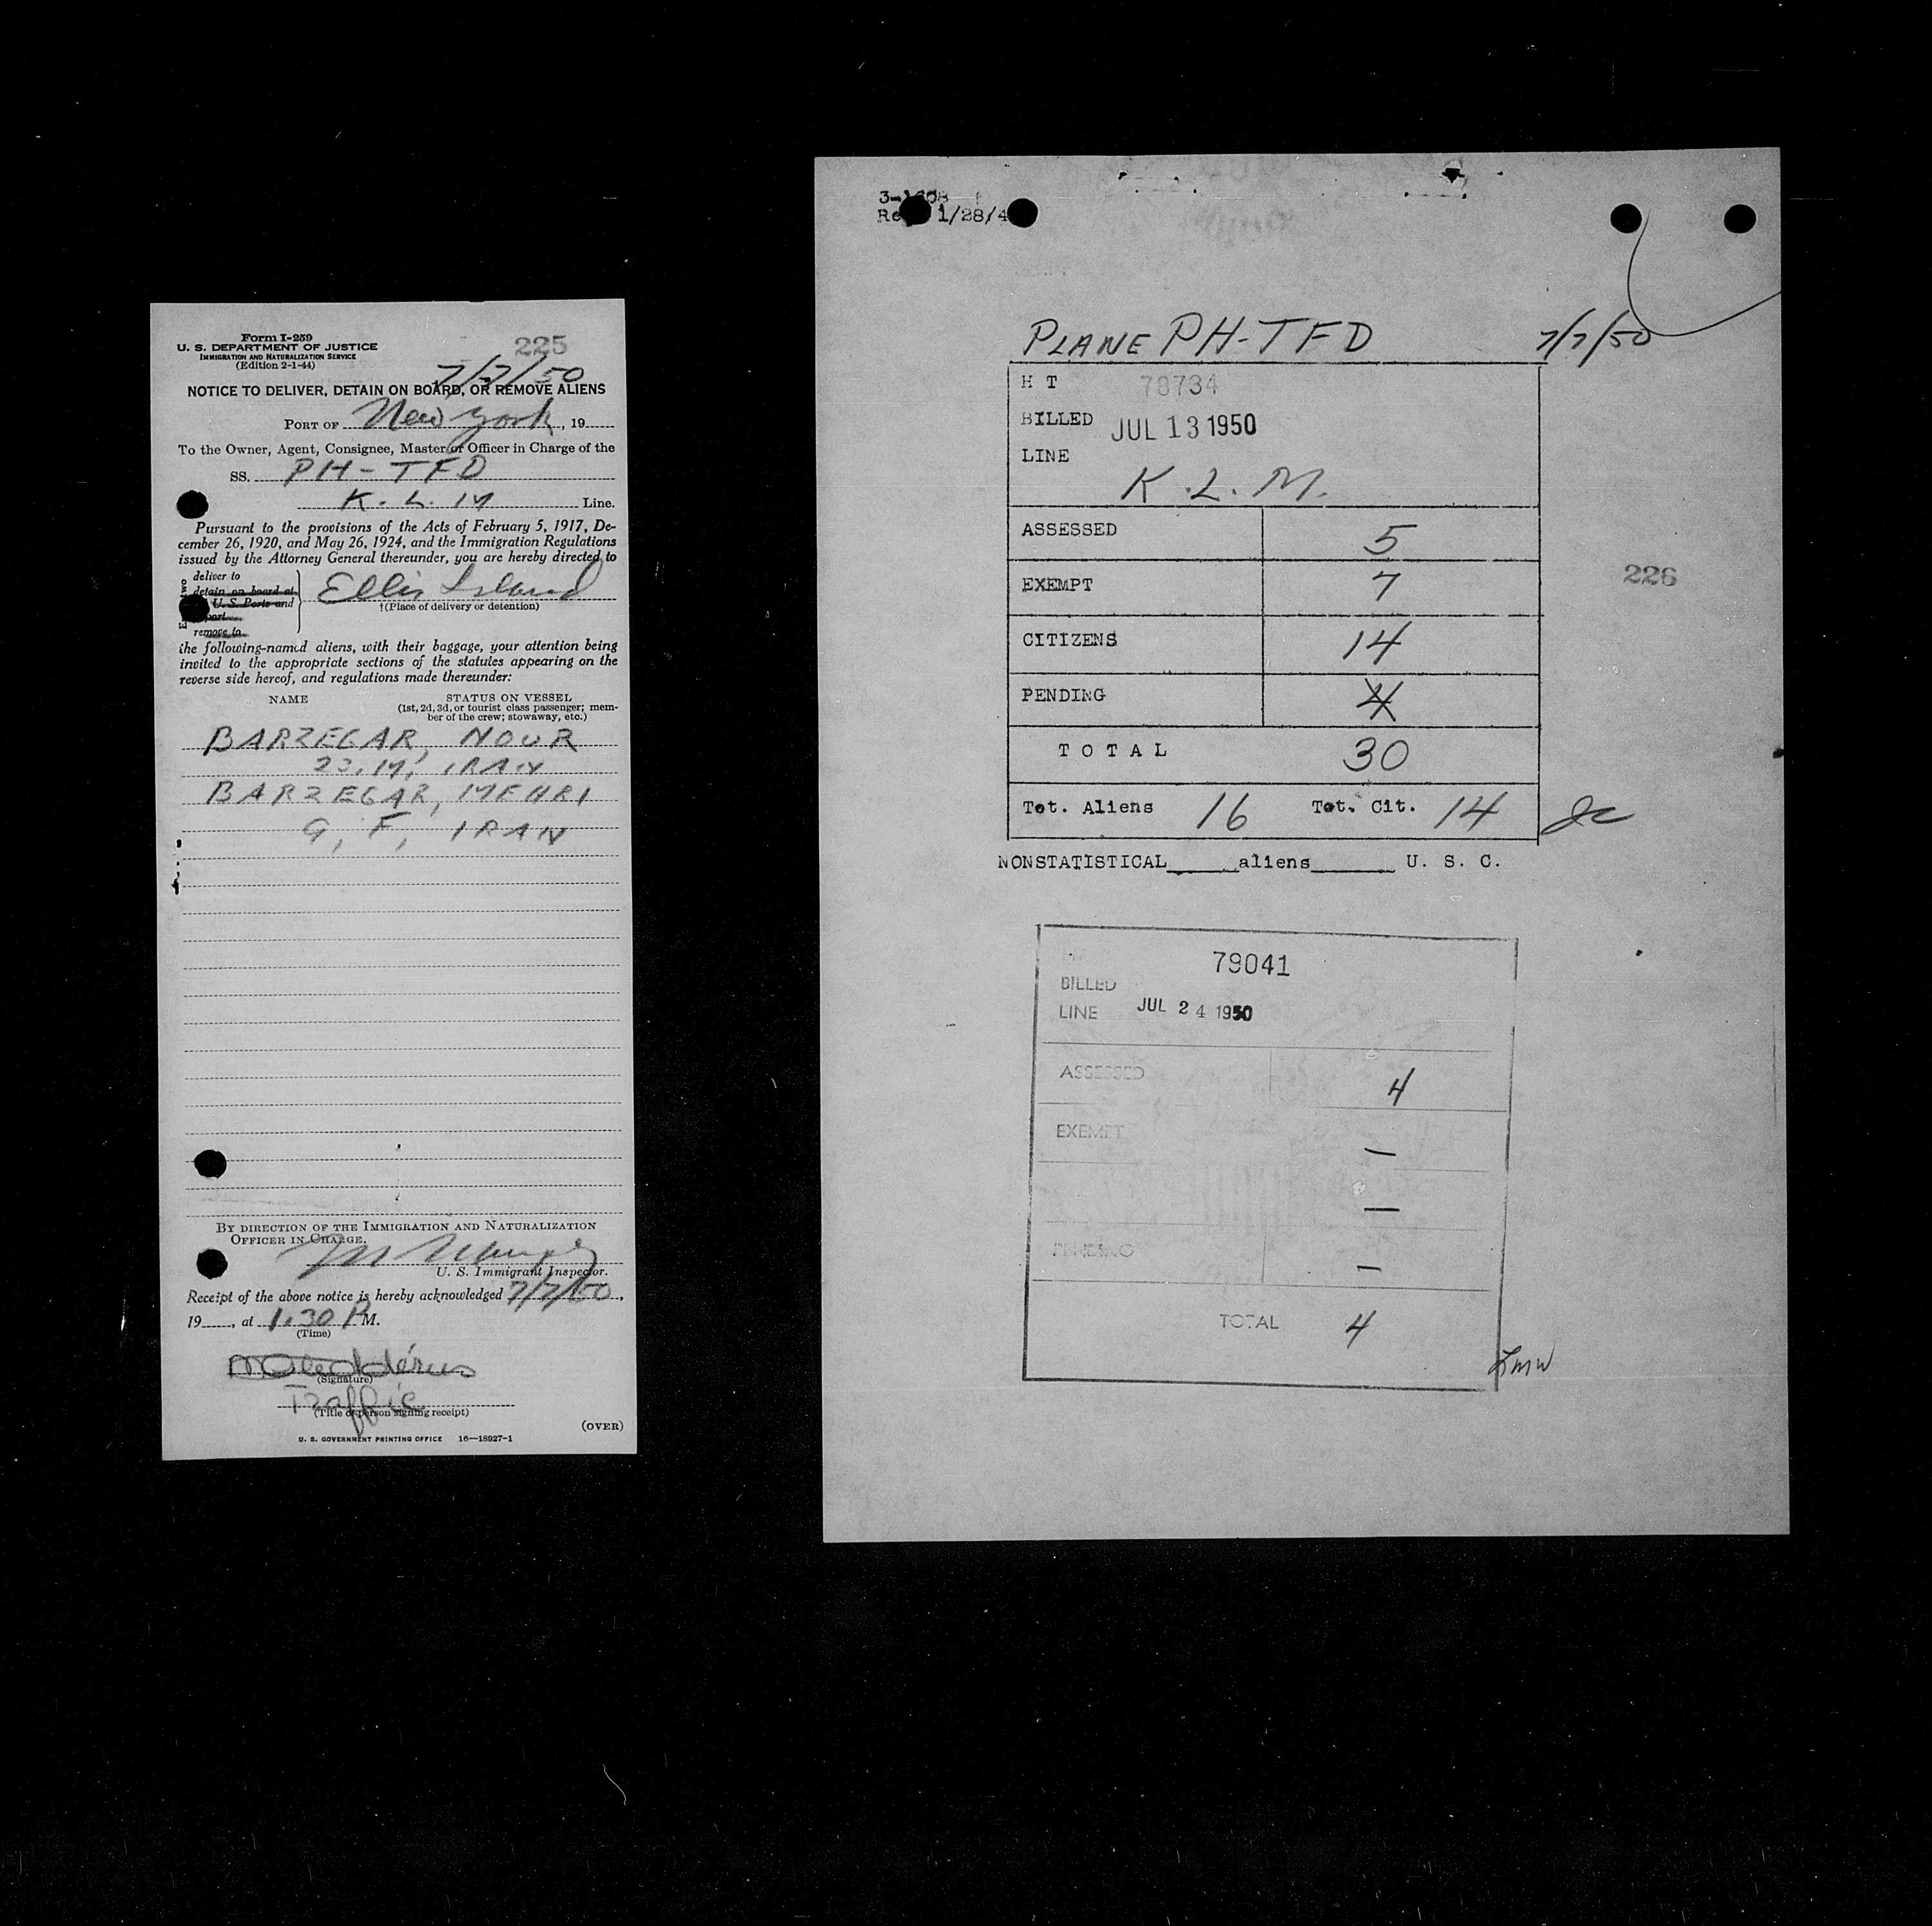 Form I-259
U. S. DEPARTMENT OF JUSTICE
IMMIGRATION AND NATURALIZATION SERVICE
(Edition 2-1-44)
225
7/7/50
NOTICE TO DELIVER, DETAIN ON BOARD, OR REMOVE ALIENS
PORT OF New York, 19
To the Owner, Agent, Consignee, Master or Officer in Charge of the
SS. PH-TFD
K. L. M Line.
Pursuant to the provisions of the Acts of February 5, 1917, De-
cember 26, 1920, and May 26, 1924, and the Immigration Regulations
issued by the Attorney General thereunder, you are hereby directed to
deliver to
detain on board at
U. S. Ports and
remove to
Ellis Island
†(Place of delivery or detention)
the following-named aliens, with their baggage, your attention being
invited to the appropriate sections of the statutes appearing on the
reverse side hereof, and regulations made thereunder:
NAME STATUS ON VESSEL
(1st, 2d, 3d, or tourist class passenger; mem-
ber of the crew; stowaway, etc.)
BARZEGAR, NOUR
23, M, IRAN
BARZEGAR, MEHRI
9, F, IRAN
BY DIRECTION OF THE IMMIGRATION AND NATURALIZATION
OFFICER IN CHARGE.
U. S. Immigrant Inspector.
Receipt of the above notice is hereby acknowledged 7/7/50,
19, at 1:30 P M.
(Time)
(Signature)
Traffic
(Title of person signing receipt)
(OVER)
U. S. GOVERNMENT PRINTING OFFICE 16—18927-1
1/28/4
PLANE PH-TFD 7/7/50
H T 78734
BILLED JUL 13 1950
LINE
K.L.M.
ASSESSED 5
EXEMPT 7
226
CITIZENS 14
PENDING 4
TOTAL 30
Tot. Aliens 16 Tot. Cit. 14 JC
NONSTATISTICAL aliens U. S. C.
79041
BILLED
LINE JUL 24 1950
ASSESSED 4
EXEMPT —
—
PENDING —
TOTAL 4
LMW